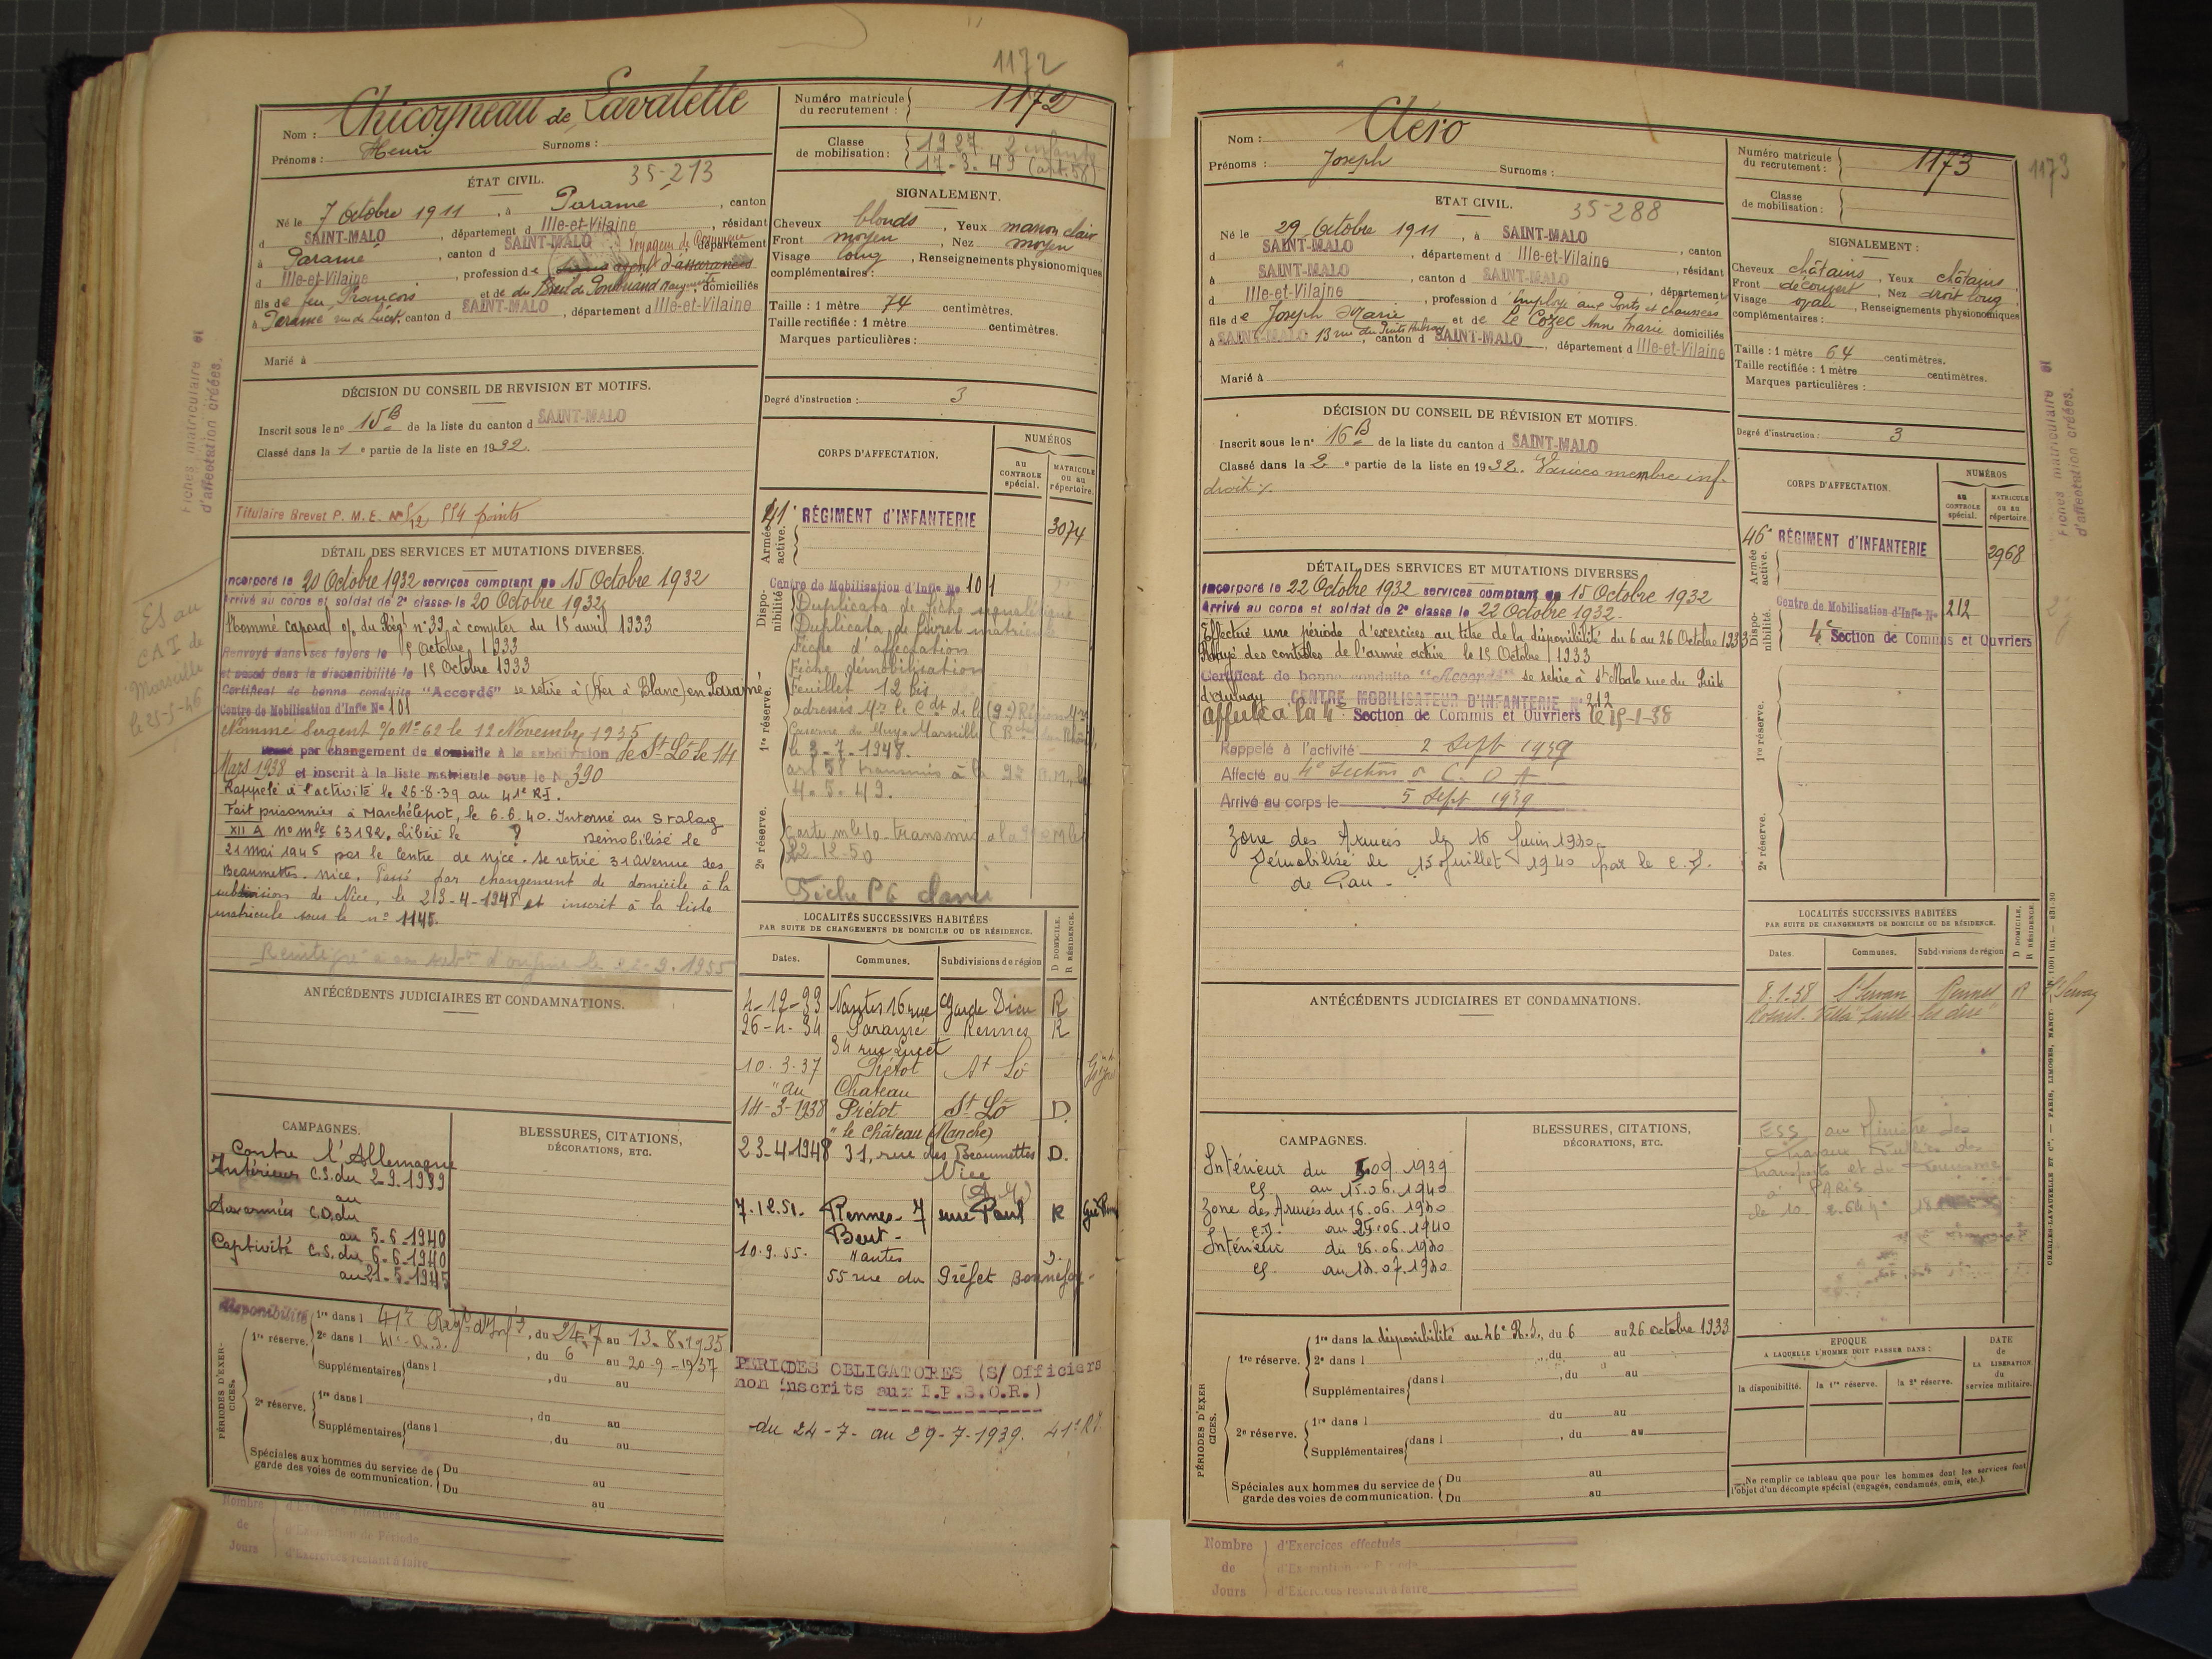 1172
Nom : Chicoyneau de Lavalette
Prénoms : Henri Surnoms :
Numéro matricule du recrutement : 1172
Classe de mobilisation : 1927 2 enfants
17-3-49 (art. 58)
ÉTAT CIVIL. 35-213
Né le 7 Octobre 1911, à Paramé, canton
d SAINT-MALO, département d Ille-et-Vilaine, résidant
à Paramé, canton d SAINT-MALO, Voyageur de Commerce département
d Ille-et-Vilaine, profession de agent d'assurances
fils de feu François et de du Breil de Pontbriand Marguerite, domiciliés
à Paramé canton d SAINT-MALO, département d Ille-et-Vilaine
Marié à
SIGNALEMENT.
Cheveux blonds, Yeux marron clair
Front moyen, Nez moyen
Visage long, Renseignements physionomiques
complémentaires :
Taille : 1 mètre 74 centimètres.
Taille rectifiée : 1 mètre centimètres.
Marques particulières :
Degré d'instruction : 3
Fiches matriculaire et
d'affectation créées.
DÉCISION DU CONSEIL DE REVISION ET MOTIFS.
Inscrit sous le no 15B de la liste du canton d SAINT-MALO
Classé dans la 1e partie de la liste en 1932.
Titulaire Brevet P. M. E. 554 points
DÉTAIL DES SERVICES ET MUTATIONS DIVERSES.
Incorporé le 20 Octobre 1932 services comptant de 15 Octobre 1932
Arrivé au corps et soldat de 2e classe le 20 Octobre 1932
Nommé caporal o/ du Régt n° 39 à compter du 15 avril 1933
Renvoyé dans ses foyers le 15 Octobre 1933
et passé dans la disponibilité le 15 Octobre 1933
Certificat de bonne conduite "Accordé" se retire à (Ker à Blanc) en Paramé
Centre de Mobilisation d'Infie No 101
Nommé Sergent o/ No 62 le 12 Novembre 1935
Passé par changement de domicile à la subdivision de St Lô le 14
Mars 1938 et inscrit à la liste matricule sous le No 390
Rappelé à l'activité le 26-8-39 au 41e RI.
Fait prisonnier à Marchélepot, le 6.6.40. Interné au Stalag
XII A No mle 63182. Libéré le ? Démobilisé le
21 mai 1945 par le Centre de Nice. Se retire 31 avenue des
Beaumettes. Nice. Passé par changement de domicile à la
subdivision de Nice, le 23-4-1948 et inscrit à la liste
matricule sous le no 1145.
Réintégré à sa subon d'origine le 9.1955
ES au
CAT de
Marseille
le 25-5-46
CORPS D'AFFECTATION.
NUMÉROS
au CONTROLE spécial.
MATRICULE ou au répertoire.
Armée active.
41e RÉGIMENT d'INFANTERIE 3074
Disponibilité
Centre de Mobilisation d'Infie No 101
Duplicata de fiche signalétique
Duplicata de livret matricule
Fiche d'affectation
Fiche démobilisation
Feuillet 12 bis
1re réserve.
adressés Mr le Cdt de la (9e) Région Mre
Caserne du Muy - Marseille
le 3-7-1948
art 58 transmis à la
4.5.49.
2e réserve.
Carte mle 10 transmis
22-12-50
Fiche P6
ANTÉCÉDENTS JUDICIAIRES ET CONDAMNATIONS.
LOCALITÉS SUCCESSIVES HABITÉES
PAR SUITE DE CHANGEMENTS DE DOMICILE OU DE RÉSIDENCE.
D DOMICILE. R RÉSIDENCE.
Dates. Communes. Subdivisions de région
4-12-33 Nantes 16 rue Garde Dieu R
26-4-34 Paramé Rennes R
34 rue Lucet
10.3.37 Prétot St Lô
" au Chateau
14-3-1938 Prétot St Lô D.
" le Château (Manche)
23-4-1948 31, rue des Beaumettes D.
Nice
(A. M.)
7.12.51. Rennes - 7 rue Paul R
Bert -
10.9.55. Nantes D.
55 rue du Préfet Bonnefoy -
CAMPAGNES.
Contre l'Allemagne
Intérieur C.S. du 2-9-1939
au
Aux armées C.D. du
au 5-6-1940
Captivité C.S. du 6-6-1940
au 21-5-1945
BLESSURES, CITATIONS,
DÉCORATIONS, ETC.
PÉRIODES D'EXERCICES.
disponibilité
1re réserve. 1re dans l 41e Régt d'Infie, du 24-7 au 13-8-1935
2e dans l 41e R.I., du 6 au 20-9-1937
Supplémentaires dans l , du au
2e réserve. 1re dans l , du au
Supplémentaires dans l , du au
Spéciales aux hommes du service de garde des voies de communication. Du au
Du au
PERIODES OBLIGATOIRES (S/Officiers
non inscrits aux E.P.S.O.R.)
du 24-7- au 29-7-1939. 41e RI.
Nombre de Jours
d'Exercices effectués
d'Exemption de Période
d'Exercices restant à faire
1173
Nom : Cléro
Prénoms : Joseph Surnoms :
Numéro matricule du recrutement : 1173
Classe de mobilisation :
ETAT CIVIL. 35-288
Né le 29 Octobre 1911, à SAINT-MALO
d SAINT-MALO, département d Ille-et-Vilaine, canton
à SAINT-MALO, canton d SAINT-MALO, résidant
d Ille-et-Vilaine, profession d Employé aux Ponts et chaussées département
fils de Joseph Marie et de Le Cozec Ann Marie domiciliés
à SAINT-MALO 13 rue du Puits Aubray, canton d SAINT-MALO, département d Ille-et-Vilaine
Marié à
SIGNALEMENT :
Cheveux châtains, Yeux châtains,
Front découvert, Nez droit long,
Visage ovale, Renseignements physionomiques
complémentaires :
Taille : 1 mètre 64 centimètres.
Taille rectifiée : 1 mètre centimètres.
Marques particulières :
Degré d'instruction : 3
Fiches matriculaire et
d'affectation créées.
DÉCISION DU CONSEIL DE RÉVISION ET MOTIFS.
Inscrit sous le no 16B de la liste du canton d SAINT-MALO
Classé dans la 2e partie de la liste en 1932. Varices membre inf.
droit
DÉTAIL DES SERVICES ET MUTATIONS DIVERSES
Incorporé le 22 Octobre 1932 services comptant de 15 Octobre 1932
Arrivé au corps et soldat de 2e classe le 22 Octobre 1932.
Effectué une période d'exercices au titre de la disponibilité du 6 au 26 Octobre 1933
Rayé des contrôles de l'armée active le 15 Octobre 1933
Certificat de bonne conduite "Accordé" se retire à St Malo rue du Puits
d'Aubray CENTRE MOBILISATEUR D'INFANTERIE No 212
Affecté à la 4e Section de Commis et Ouvriers le 15-1-38
Rappelé à l'activité 2 Sept 1939
Affecté au 4e Section d C. O. A
Arrivé au corps le 5 Sept 1939
Zone des Armées le 16 Juin 1940.
Démobilisé le 15 Juillet 1940 par le C.D.
de Pau -
CORPS D'AFFECTATION.
NUMÉROS
au CONTROLE spécial.
MATRICULE ou au répertoire.
Armée active.
46e RÉGIMENT d'INFANTERIE 2968
Disponibilité.
Centre de Mobilisation d'Infie No 212
4e Section de Commis et Ouvriers
1re réserve.
2e réserve.
ANTÉCÉDENTS JUDICIAIRES ET CONDAMNATIONS.
LOCALITÉS SUCCESSIVES HABITÉES
PAR SUITE DE CHANGEMENTS DE DOMICILE OU DE RÉSIDENCE.
D DOMICILE. R RÉSIDENCE.
Dates. Communes. Subdivisions de région
8.1.38 St Servan Rennes R St Servan
ESS au Ministère des
Travaux Publics des
Transports et du Tourisme
à PARIS
CAMPAGNES.
Intérieur du 5.09.1939
CS. au 15.06.1940
Zone des Armées du 16.06.1940
C.D. au 25.06.1940
Intérieur du 26.06.1940
CS. au .07.1940
BLESSURES, CITATIONS,
DÉCORATIONS, ETC.
PÉRIODES D'EXERCICES.
1re réserve. 1re dans la disponibilité au 46e R.I., du 6 au 26 octobre 1933
2e dans l , du au
Supplémentaires dans l , du au
2e réserve. 1re dans l du au
Supplémentaires dans l , du au
Spéciales aux hommes du service de garde des voies de communication. Du au
Du au
EPOQUE
A LAQUELLE L'HOMME DOIT PASSER DANS :
la disponibilité. la 1re réserve. la 2e réserve.
DATE de LA LIBÉRATION du service militaire.
Ne remplir ce tableau que pour les hommes dont les services font
l'objet d'un décompte spécial (engagés, condamnés, omis, etc.).
CHARLES-LAVAUZELLE ET Cie. — PARIS, LIMOGES, NANCY. 1001 int. — 831-30
Nombre de Jours
d'Exercices effectués
d'Exemption de Période
d'Exercices restant à faire